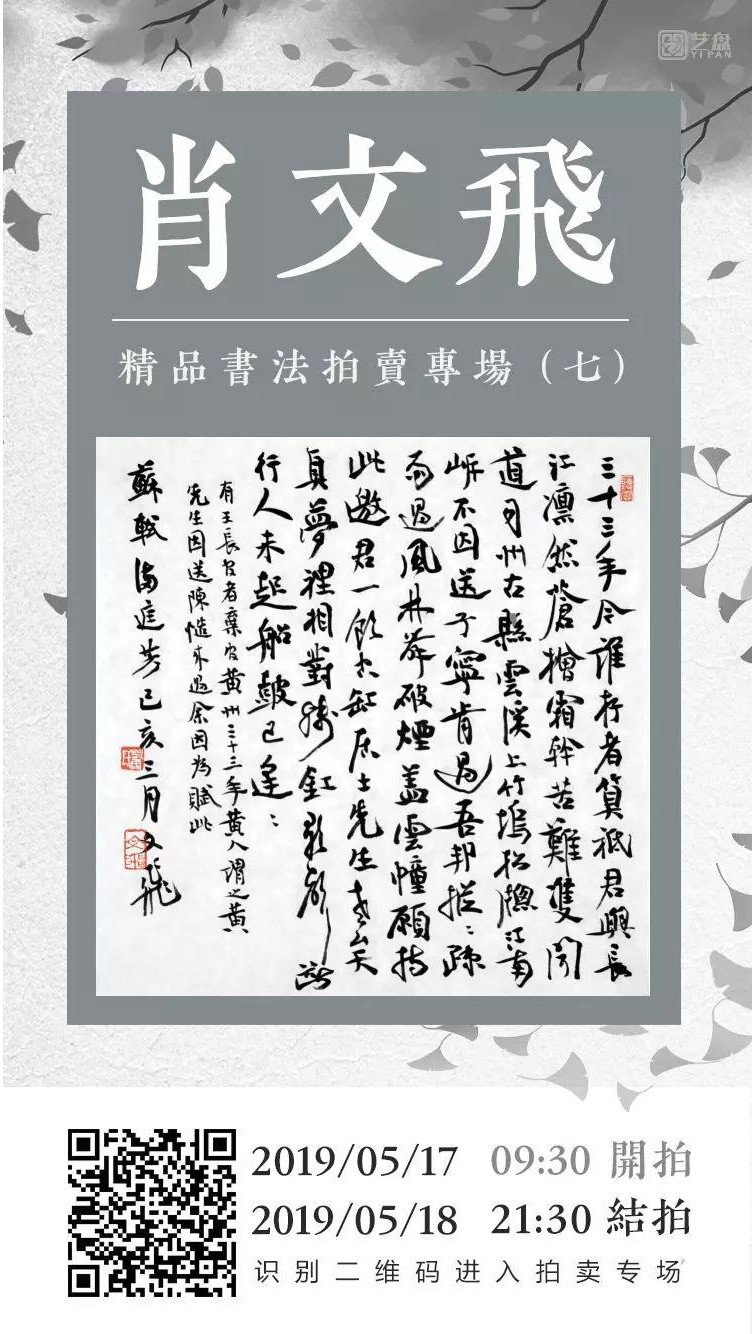 艺盘
YI PAN
肖文飛
精品書法拍賣專場（七）
三十三年今誰存者算祗君與長
江凛然蒼檜霜幹苦難雙聞
道司州古縣雲溪上竹塢松牕江南
岍不因送子寧肯過吾邦摐〻疎
雨過風林舞破煙蓋雲幢願持
此邀君一飲空缸居士先生老矣
真夢裡相對殘釭歌聲斷
行人未起船鼓已逢〻
有王長官者棄官黄州三十三年黄人謂之黄
先生因送陳慥來過余因為賦此
蘇軾滿庭芳己亥三月文飛
2019/05/17 09:30 開拍
2019/05/18 21:30 結拍
识别二维码进入拍卖专场